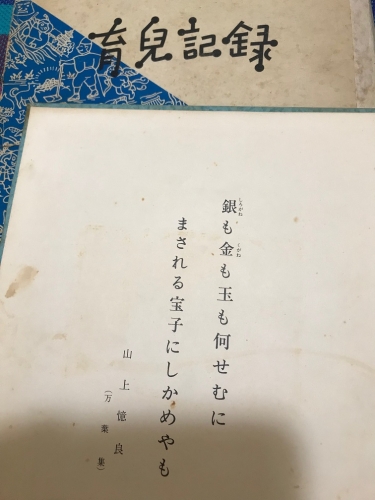 育兒記録
銀も金も玉も何せむに
しろがね
くがね
まされる宝子にしかめやも
山上憶良
(万葉集)